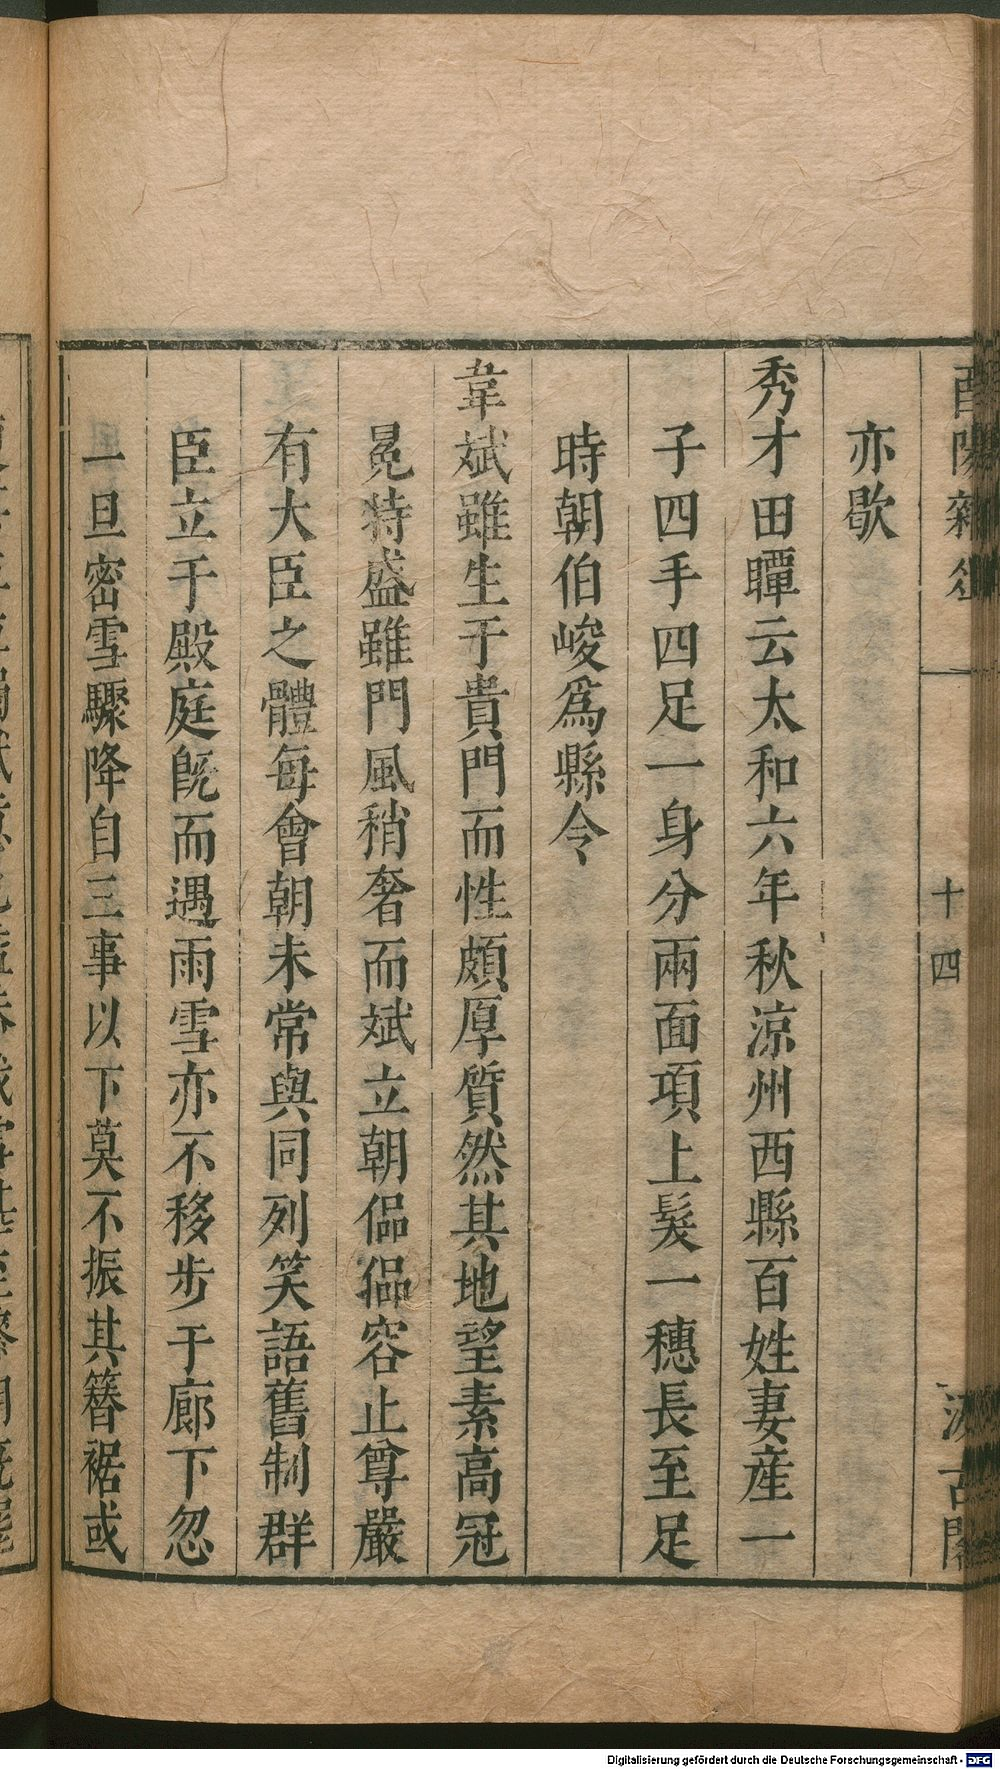 酉陽雜俎
十四
汲古閣
亦歇
秀才田瞫云太和六年秋涼州西縣百姓妻産一
子四手四足一身分兩面項上髮一穗長至足
時朝伯峻爲縣令
韋斌雖生于貴門而性頗厚質然其地望素高冠
冕特盛雖門風稍奢而斌立朝偘偘容止尊嚴
有大臣之體每會朝未常與同列笑語舊制群
臣立于殿庭旣而遇雨雪亦不移步于廊下忽
一旦密雪驟降自三事以下莫不振其簪裾或
Digitalisierung gefördert durch die Deutsche Forschungsgemeinschaft - DFG